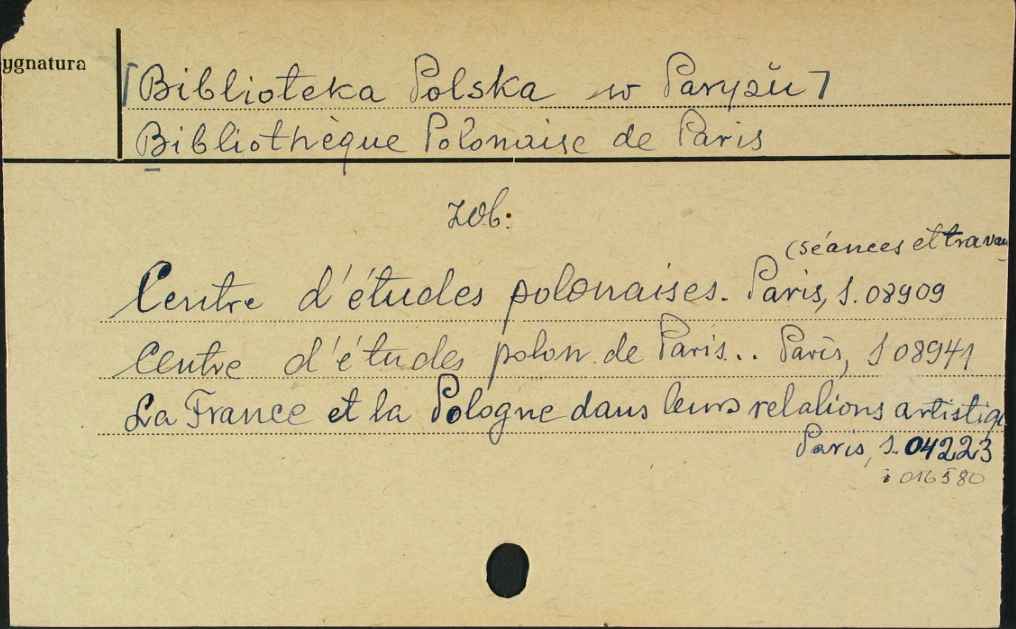 ygnatura
[Biblioteka Polska w Paryżu]
Bibliothèque Polonaise de Paris
zob:
(séances et trava
Centre d'études polonaises. Paris, S. 08909
Centre d'études polon. de Paris.. Paris, S 08941
La France et la Pologne dans leurs relations artistiq
Paris, S. 04223
i 016580